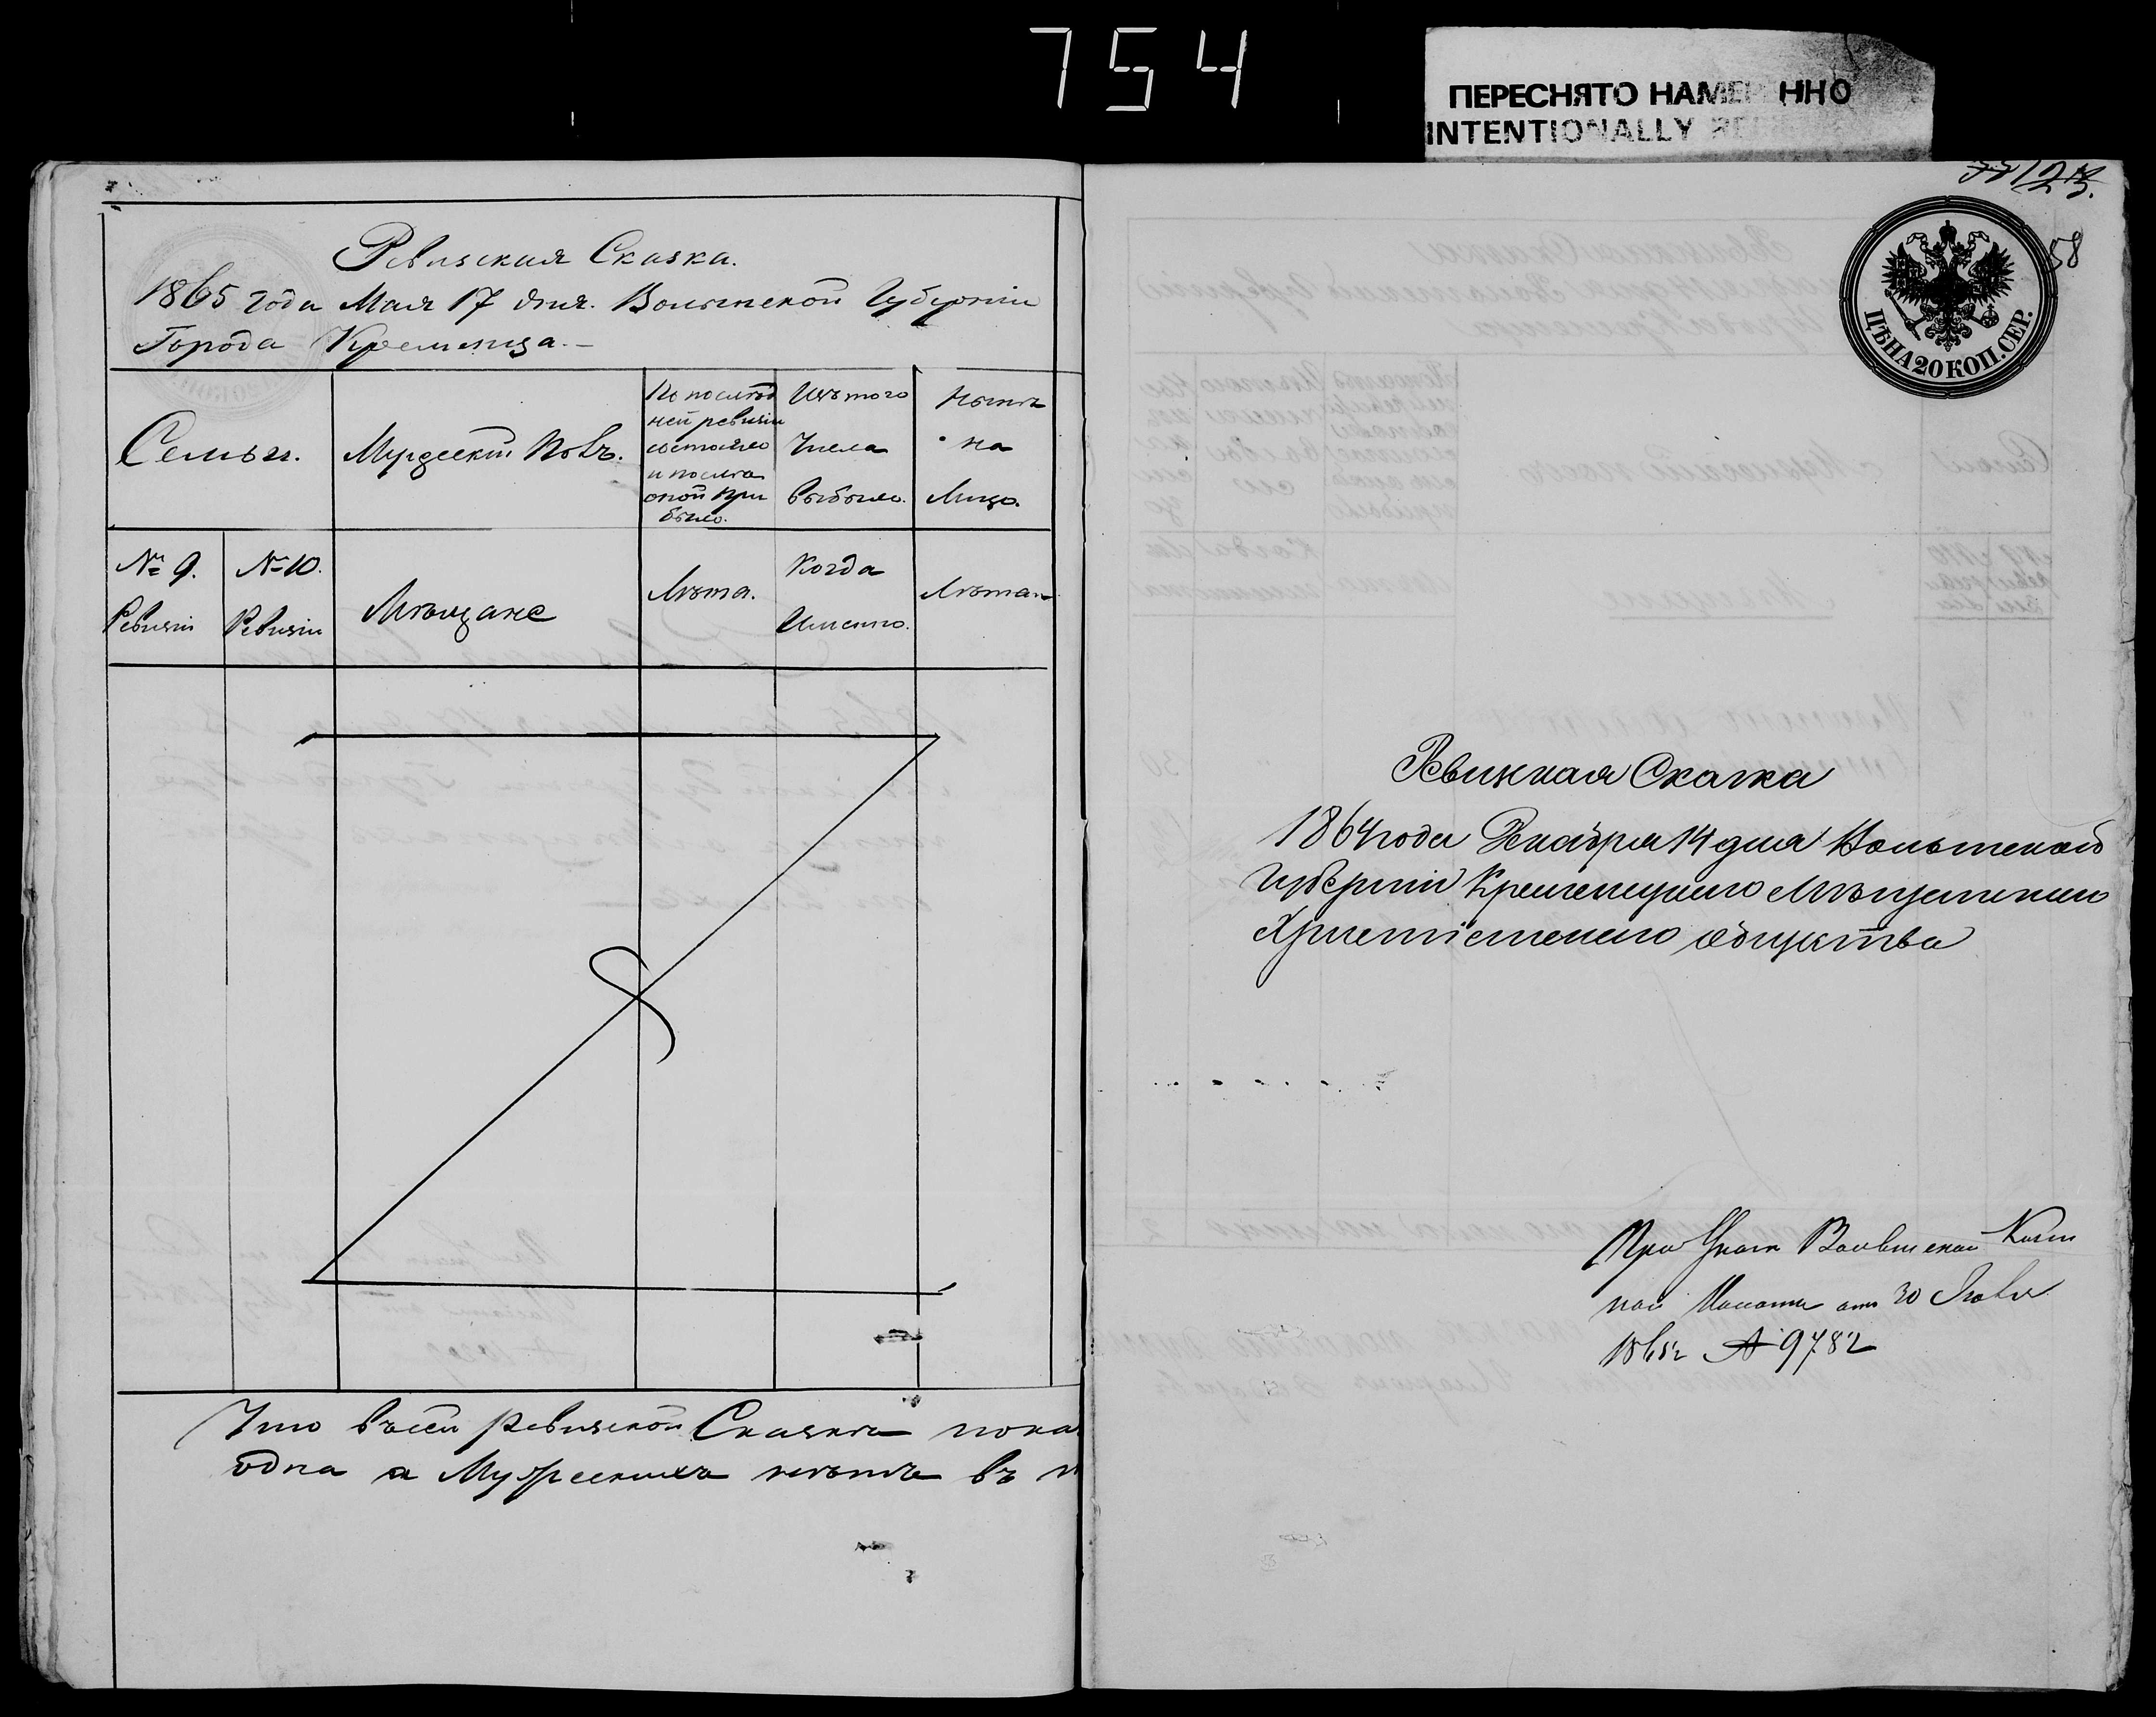 754
ПЕРЕСНЯТО НАМЕ ННО
INTENTIONALLY
Ревизская Сказка.
1865 года Мая 17 дня. Волынской Губерніи
Города Кременца.
Семьи.
Мужескій Полъ.
По послѣд
ней ревизіи
состояло
и послѣ
оной при
было.
Изъ того
Числа
выбыло.
Нынѣ
на
Лицо.
№ 9.
Ревизіи
№ 10.
Ревизіи
Мѣщане
Лѣта.
Когда
Именно.
Лѣта
Что въ сей ревизской Сказкѣ пока
одна а Мужескихъ нѣтъ въ
123.
58
ЦѢНА 20 КОП. СЕР.
Ревизская Сказка
1864 года Декабря 14 дня Волынской
Губерніи Кременецкаго Мѣщанскаго
Христіанскаго общества
При Указѣ Волынской Казен
ной Палаты отъ 30
1865 г № 9782